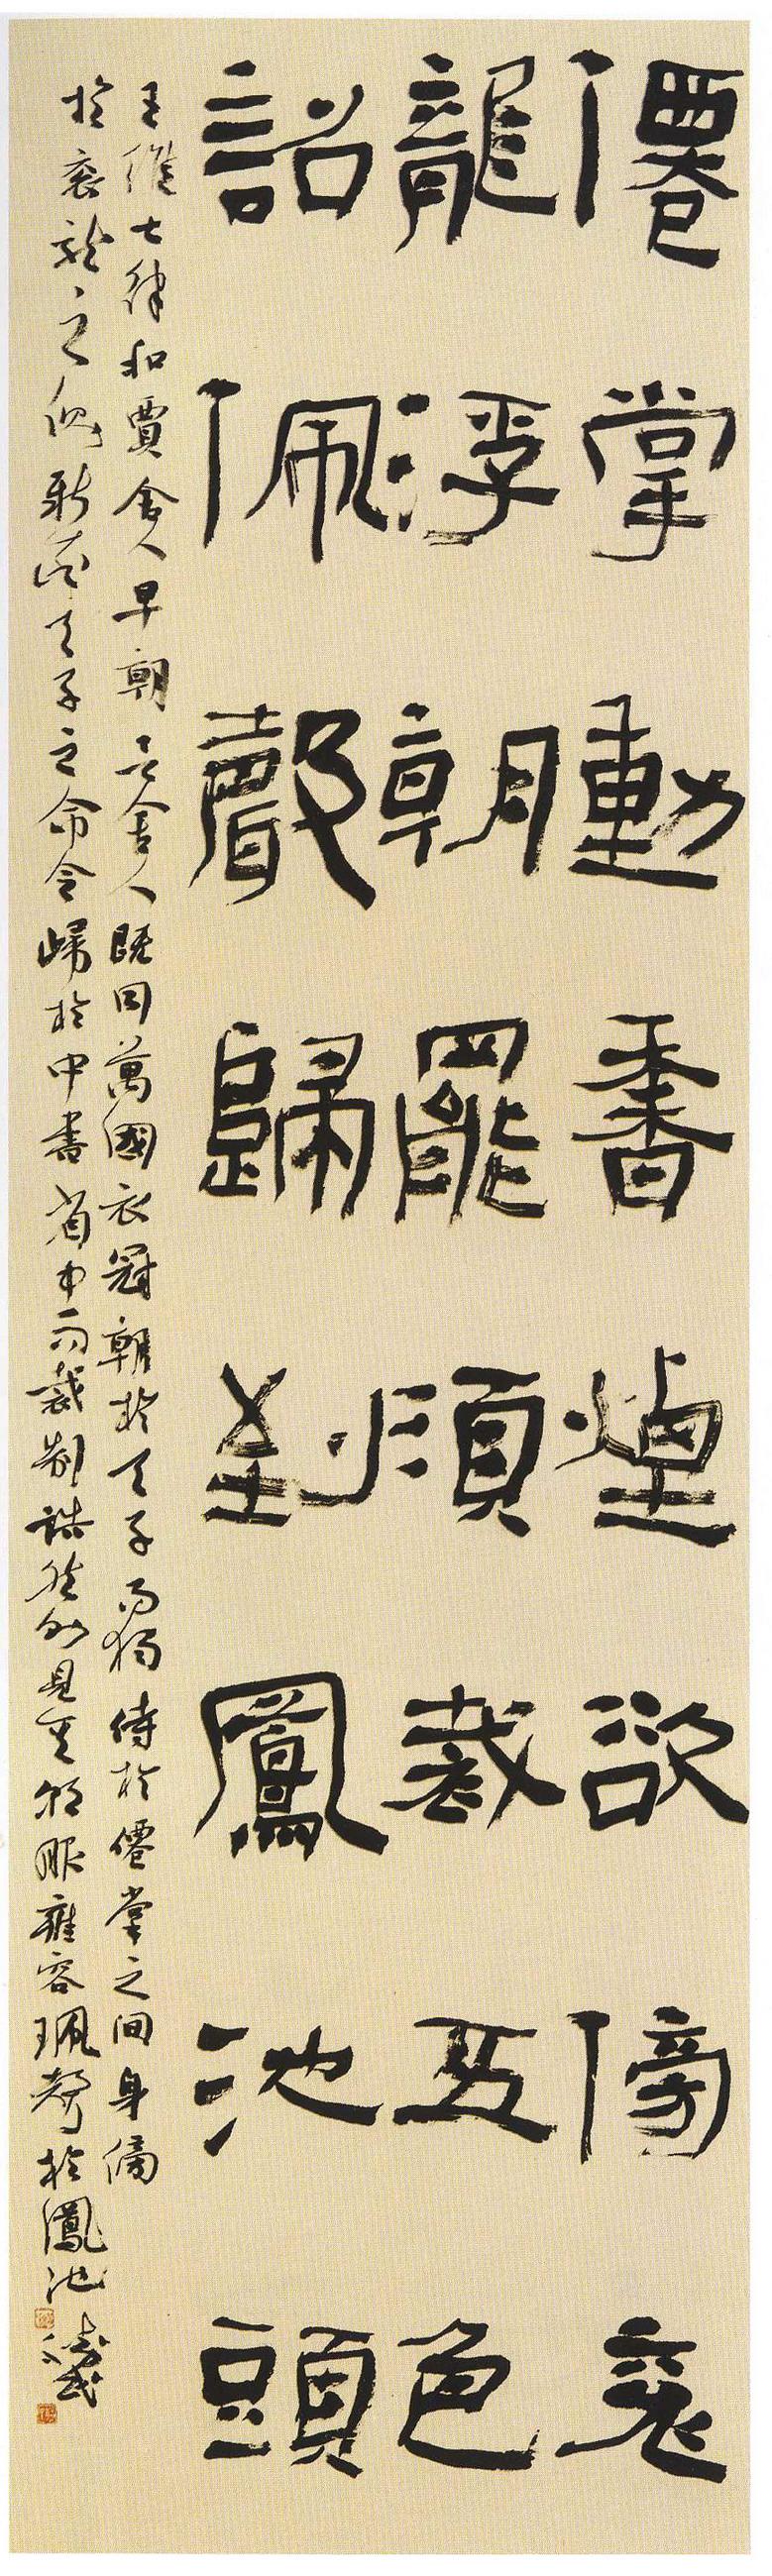 僊掌動香煙欲傍衮
龍浮朝罷須裁五色
詔佩聲歸到鳳池頭
王維七律和賈舍人早朝言舍人既同萬國衣冠朝於天子而獨侍於僊掌之間身傍
於衮龍之側天子之命令歸於中書省中而裁制誥然則見其朝服雍容珮聲於鳳池